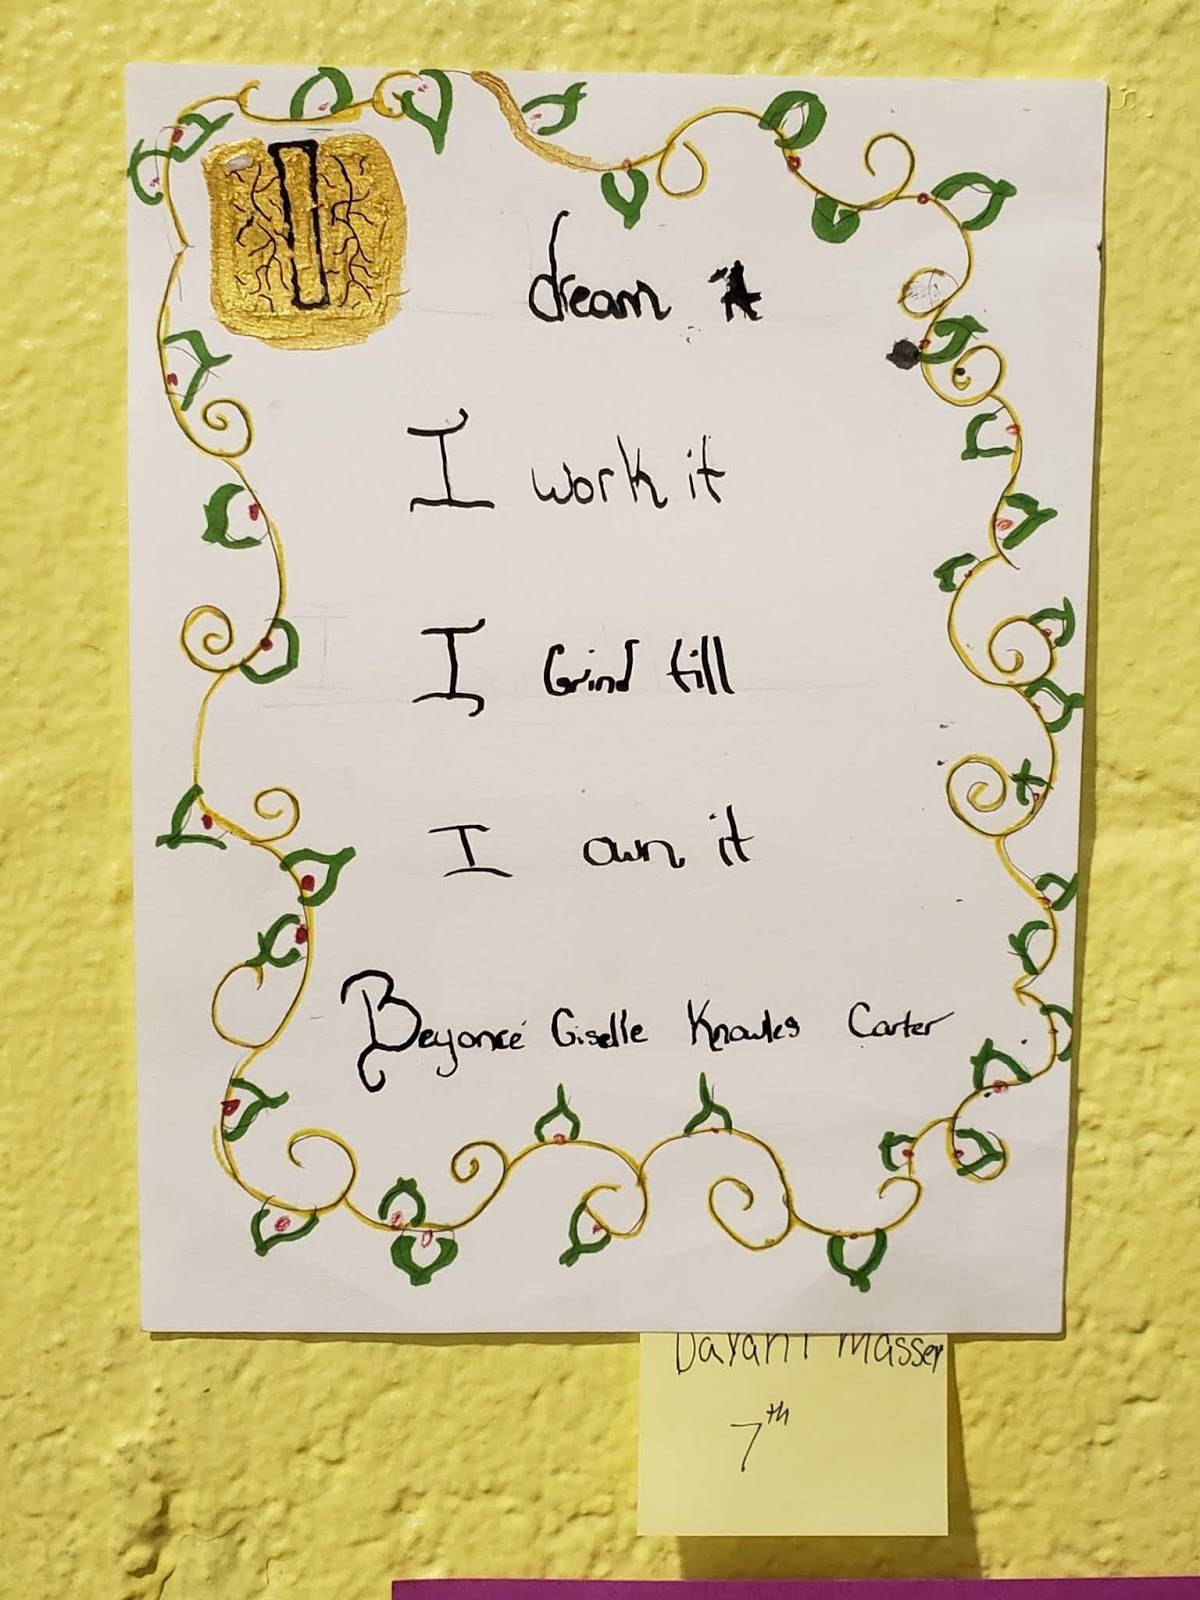 I dream it
I work it
I Grind till
I own it
Beyoncé Giselle Knowles Carter
Massey
7th